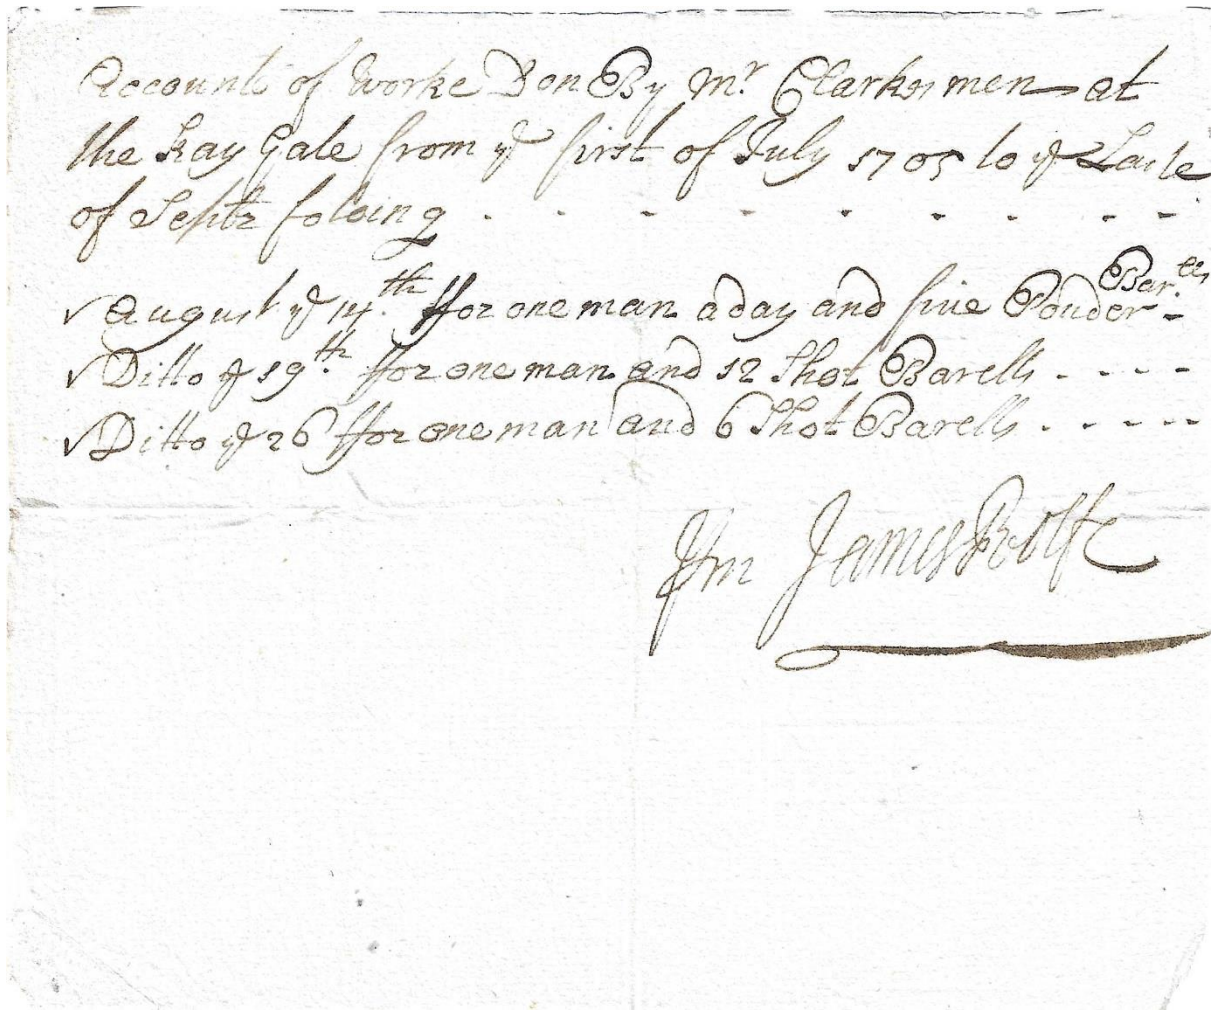 Accounts of Worke Don By Mr. Clarkes men at
the Kay Gate from ye first of July 1705 to ye Laste
of Septr foloing
August ye 14th. ffor one man a day and five Pouder Bar.ells
Ditto ye 19th. ffor one man and 12 Shot Barells
Ditto ye 26 ffor one man and 6 Shot Barells
James Rolfe